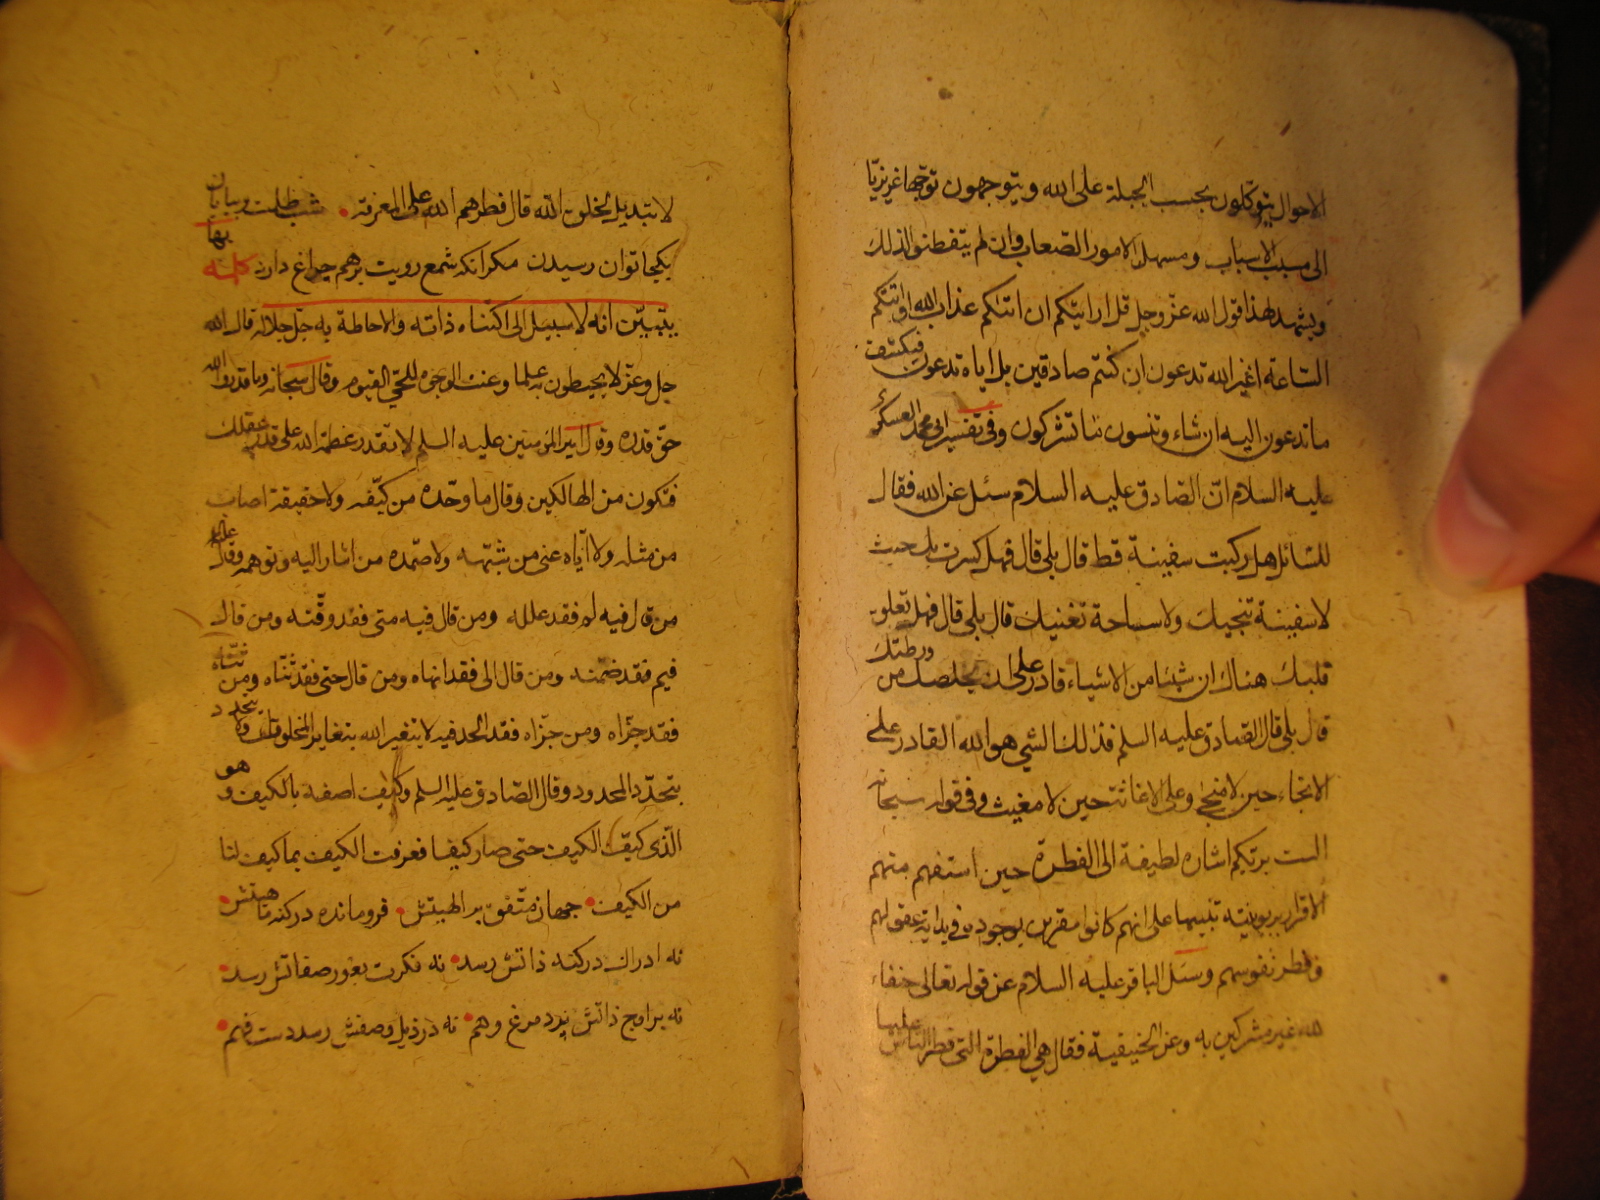 الاحوال يتوكلون بحسب الجبلة على الله ويتوجهون توجها غريزيا
الى مسبب الاسباب ومسهل الامور الصعاب وان لم يتفطنوا لذلك
ويشهد لهذا قول الله عز وجل قل ارايتكم ان اتيكم عذاب الله او اتتكم
الساعة اغير الله تدعون ان كنتم صادقين بل اياه تدعون فيكشف
ما تدعون اليه ان شاء وتنسون ما تشركون وفى تفسير ابى محمد العسكرى
عليه السلام ان الصادق عليه السلام سئل عن الله فقال
للسائل هل ركبت سفينة قط قال بلى قال فهل كسرت بك حيث
لا سفينة تنجيك ولا سباحة تغنيك قال بلى قال فهل تعلق
قلبك هناك ان شيئا من الاشياء قادر على ان يخلصك من ورطتك
قال بلى قال الصادق عليه السلم فذلك الشئ هو الله القادر على
الانجاء حين لا منجى وعلى الاغاثة حين لا مغيث وفى قوله سبحانه
الست بربكم اشاره لطيفة الى الفطرة حين استفهم منهم
الاقرار بربوبيته تنبيها على انهم كانوا مقرين بوجوده فى بداية عقولهم
وفطر نفوسهم وسئل الباقر عليه السلام عن قوله تعالى حنفاء
لله غير مشركين به وعن الحنيفية فقال هى الفطرة التى فطر الناس عليها
لا تبديل لخلق الله قال فطرهم الله على المعرفة شب ظلمت وبيابان
بكجا توان رسيدن مكر انكه شمع رويت برهم چراغ دارد كلمة بها
يتبين انه لا سبيل الى اكتناه ذاته والاحاطة به جل جلاله قال الله
جل وعز لا يحيطون به علما وعنت الوجوه للحى القيوم وقال سبحانه وما قدروا الله
حق قدره وقال امير المؤمنين عليه السلم لا تقدر عظمة الله على قدر عقلك
فتكون من الهالكين وقال ما وحده من كيفه ولا حقيقة اصاب
من مثله ولا اياه عنى من شبهه ولا صمده من اشار اليه وتوهمه وقال عليه
من قال فيه لم فقد علله ومن قال فيه متى فقد وقته ومن قال
فيم فقد ضمنه ومن قال الى فقد انهاه ومن قال حتى فقد ثناه ومن ثناه
فقد جزاه ومن جزاه فقد الحد فيه لا يتغير الله بتغاير المخلوقات ولا يتحدد
بتحدد المحدود وقال الصادق عليه السلم وكيف اصفه بالكيف وهو
الذى كيف الكيف حتى صار كيفا فعرفت الكيف بما كيف لنا
من الكيف جهان متفق بر الهيتش فرو مانده در كنه ماهيتش
نه ادراك در كنه ذاتش رسد نه فكرت بغور صفاتش رسد
نه بر اوج ذاتش پرد مرغ وهم نه در ذيل وصفش رسد دست فهم